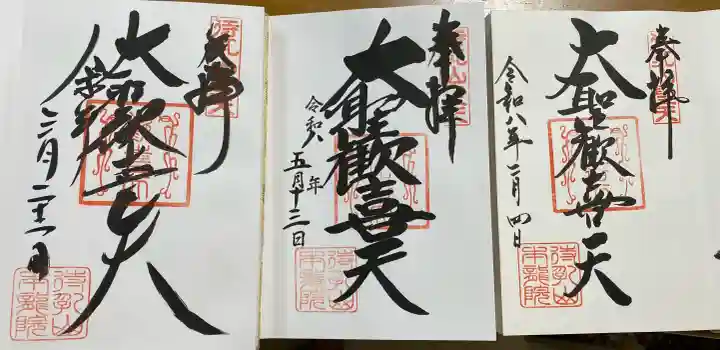 奉拝
大聖歓喜天
令和八年二月四日
待乳山
本龍院
奉拝
大聖歓喜天
令和八年
五月十三日
待乳山
本龍院
奉拝
大聖歓喜天
待乳山
本龍院